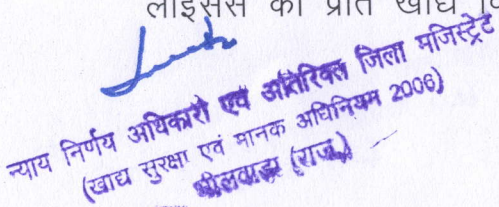 लाइसेंस की प्रति खाद्य
न्याय निर्णय अधिकारी एवं अतिरिक्त जिला मजिस्ट्रेट
(खाद्य सुरक्षा एवं मानक अधिनियम 2006)
भीलवाड़ा (राज.)